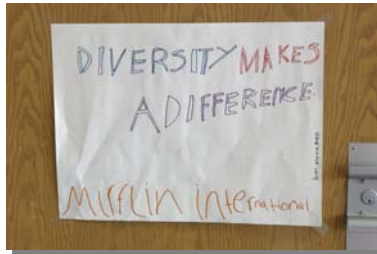 DIVERSITY MAKES
A DIFFERENCE.
Mifflin international